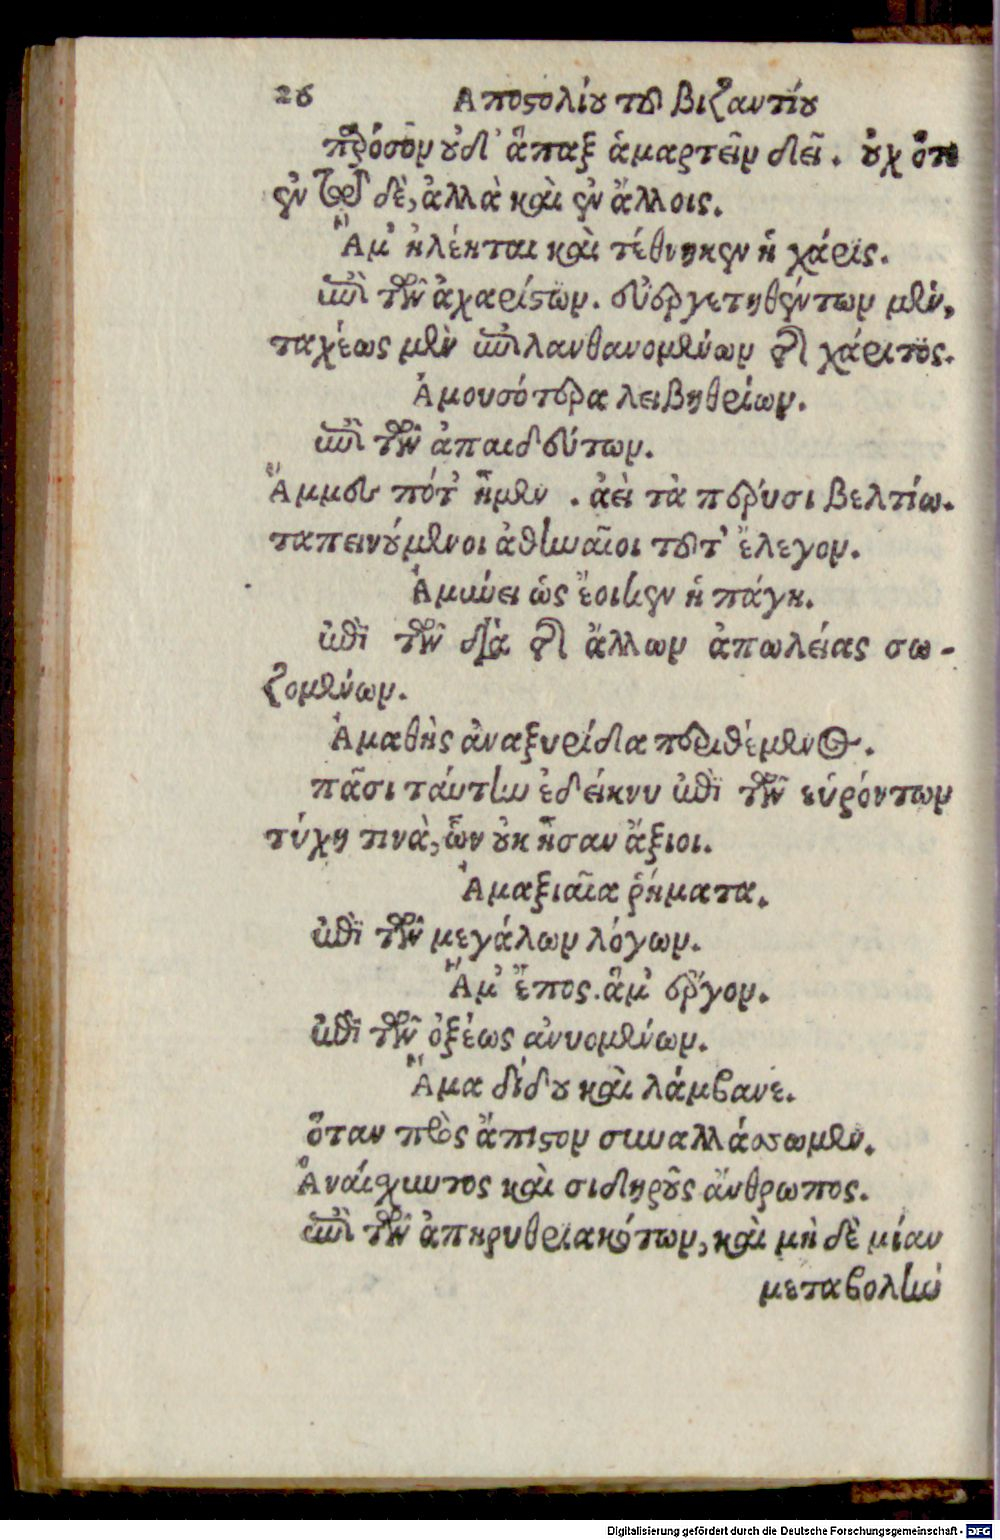 26 Αποστολίου τοῦ Βιζαντίου
πρόσον οὐδ' ἅπαξ ἁμαρτεῖν δεῖ. οὐχ ὅτι
ἐν τῷ δὲ, ἀλλὰ καὶ ἐν ἄλλοις.
Ἅμ' ἠλέηται καὶ τέθνηκεν ἡ χάρις.
ἐπὶ τῶν ἀχαρίστων. εὐεργετηθέντων μὲν,
ταχέως μὲν ἐπιλανθανομένων τῆς χάριτος.
Ἀμουσότερα λειβηθρίων.
ἐπὶ τῶν ἀπαιδεύτων.
Ἄμμες πότ' ἦμεν . ἀεὶ τὰ πέρυσι βελτίω.
ταπεινούμενοι ἀθηναῖοι τοῦτ' ἔλεγον.
Ἀμύνει ὡς ἔοικεν ἡ πάγη.
ἐπὶ τῶν διὰ τῆς ἄλλων ἀπωλείας σω-
ζομένων.
Ἀμαθὴς ἀναξυρίδα περιθέμενος.
πᾶσι ταύτην ἐδείκνυ ἐπὶ τῶν εὑρόντων
τύχῃ τινὰ, ὧν οὐκ ἦσαν ἄξιοι.
Ἁμαξιαῖα ῥήματα.
ἐπὶ τῶν μεγάλων λόγων.
Ἅμ' ἔπος. ἅμ' ἔργον.
ἐπὶ τῶν ὀξέως ἀνυομένων.
Ἅμα δίδου καὶ λάμβανε.
ὅταν πρὸς ἄπιστον συναλλάσσωμεν.
Ἀναίσχυντος καὶ σιδηροῦς ἄνθρωπος.
ἐπὶ τῶν ἀπηρυθριακότων, καὶ μὴ δὲ μίαν
μεταβολὴν
Digitalisierung gefördert durch die Deutsche Forschungsgemeinschaft - DFG